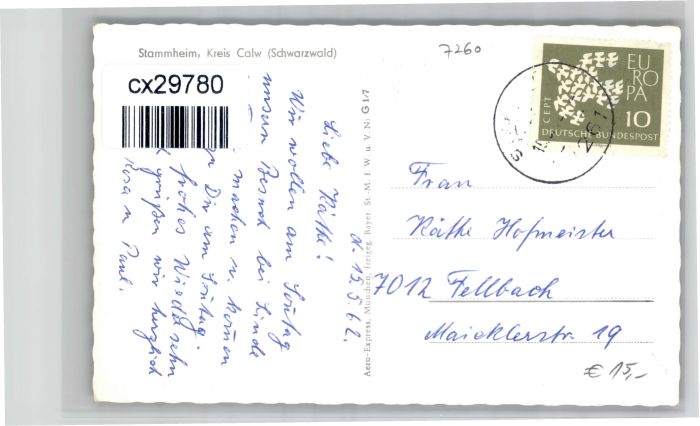 Stammheim, Kreis Calw (Schwarzwald)
7260
cx29780
EU
RO
PA
CEPT
10
DEUTSCHE BUNDESPOST
d. 15.5.62.
Liebe Käthe!
Wir wollen am Sonntag
unsern Besuch bei Linde
machen u. können
Dir am Sonntag.
frohes Wiedersehn
grüßen wir herzlich
Rosa u Paul.
Aero-Express, München, freigeg. Bayer. St. M. f. W. u. V. Nr. G 1/7
Frau
Käthe Hofmeister
7012 Fellbach
Maicklerstr. 19
€ 15,-